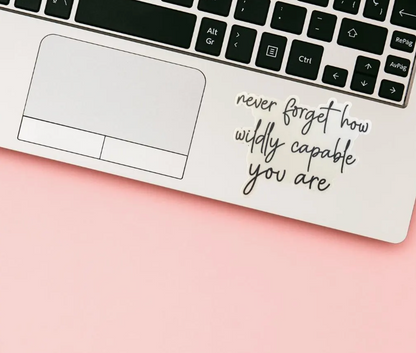 Alt
Gr
Ctrl
RePag
AvPag
never forget how
wildly capable
you are